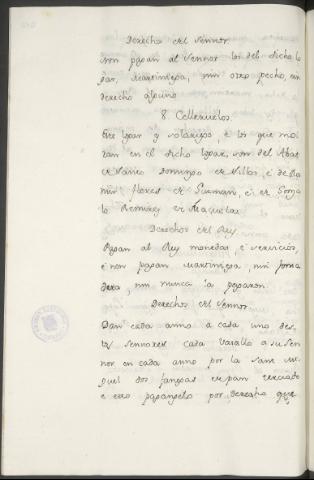 Derecho del Sennor.
Non pagan al Sennor los del dicho lo
gar, martiniega, nin otro pecho, nin
derecho alguno
8. Celleruelos.
Este logar es solariego, e los que mo
ran en el dicho logar, son del Abat
de Sancto Domingo de Villos, e de Ra
mir Flores de Guzman, e de Gonza
lo Remirez de Maquelas
Derechos del Rey.
Pagan al Rey monedas e servicios,
e non pagan martiniega, nin fonsa
dera, nin nunca la pagaron.
Derechos del Sennor.
Dan cada anno a cada uno des
tos Sennores cada vasallo a su Sen
nor en cada anno por la Sant Mi
guel dos fanegas de pan terciado
e esto pagangelo por derecho que